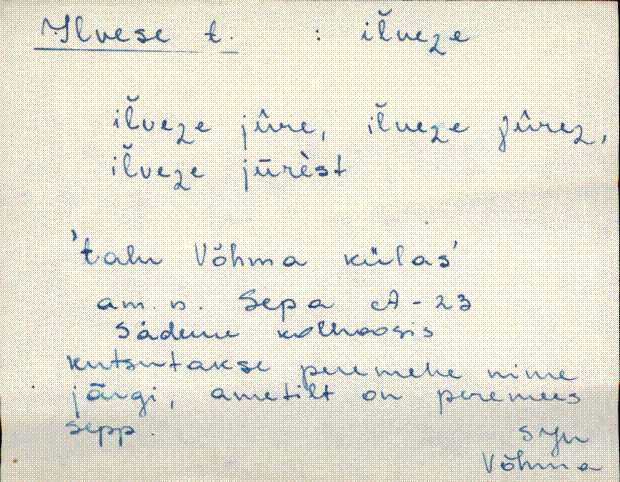 Ilvese t. : iľveze
iľveze jûre, iľveze jûrez,
iľveze jūrèst
'talu Võhma külas'
am. n. Sepa A-23
Sädeme kolhoosis
kutsutakse peremehe nime
järgi, ametilt on peremees
sepp.
SJn
Võhma